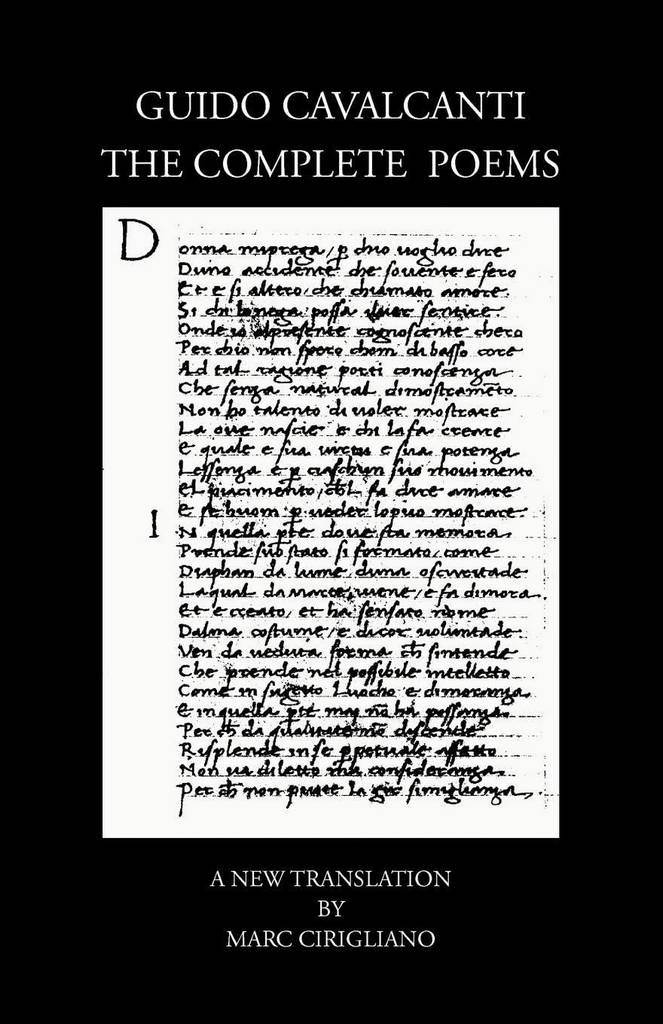 GUIDO CAVALCANTI
THE COMPLETE POEMS
D
onna mi prega / p̱ chio uoglio dire
Duno accidente che souente e fero
Et e si altero / che chiamato amore
Si chi lo nega possa sentire
Onde presente cognoscente chero
Per chio non spero chom di basso core
Ad tal ragione porti conoscenza
Che senza natural dimostramēto
Non ho talento di uoler mostrare
La oue nascie e chi la fa creare
E quale e sua uirtu e sua potenza
Lessenza e p̱ ciaschun suo mouimento
el piacimento / fa dire amare
E se huom p̱ ueder lo puo mostrare
I
N quella pte doue sta memora
Prende suo stato si formato / come
Diaphan da lume / duna oscuritade
La qual da marte / uiene / e fa dimora
Et e creato / et ha sensato nome
Dalma costume / e di cor uoluntade
Ven da ueduta forma ch̄ sintende
Che prende nel possibile intelletto
Come in sugetto luocho e dimoranza
E in quella pte mai nō ha possanza
Per ch̄ da discende
Risplende in se p̱petuale effetto
Non ua diletto consideranza
Per ch̄ non puote la gir simiglianza
A NEW TRANSLATION
BY
MARC CIRIGLIANO